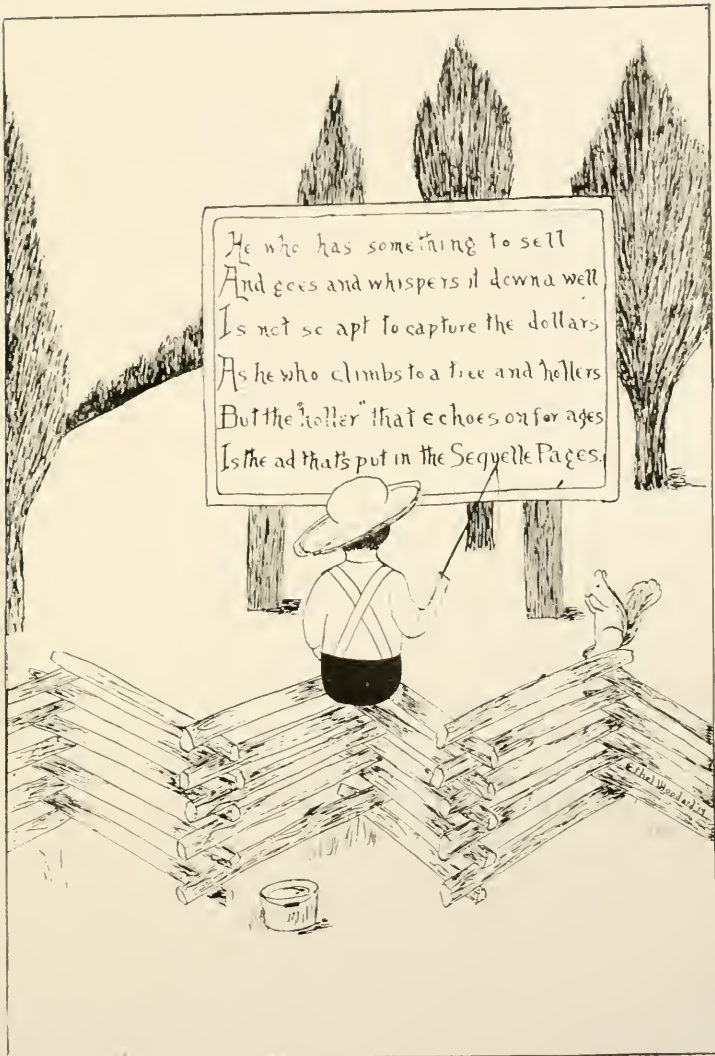 He who has something to sell
And goes and whispers it down a well
Is not so apt to capture the dollars
As he who climbs to a tree and hollers
But the "holler" that echoes on for ages
Is the ad that's put in the Sequelle Pages.
Ethel Woodard